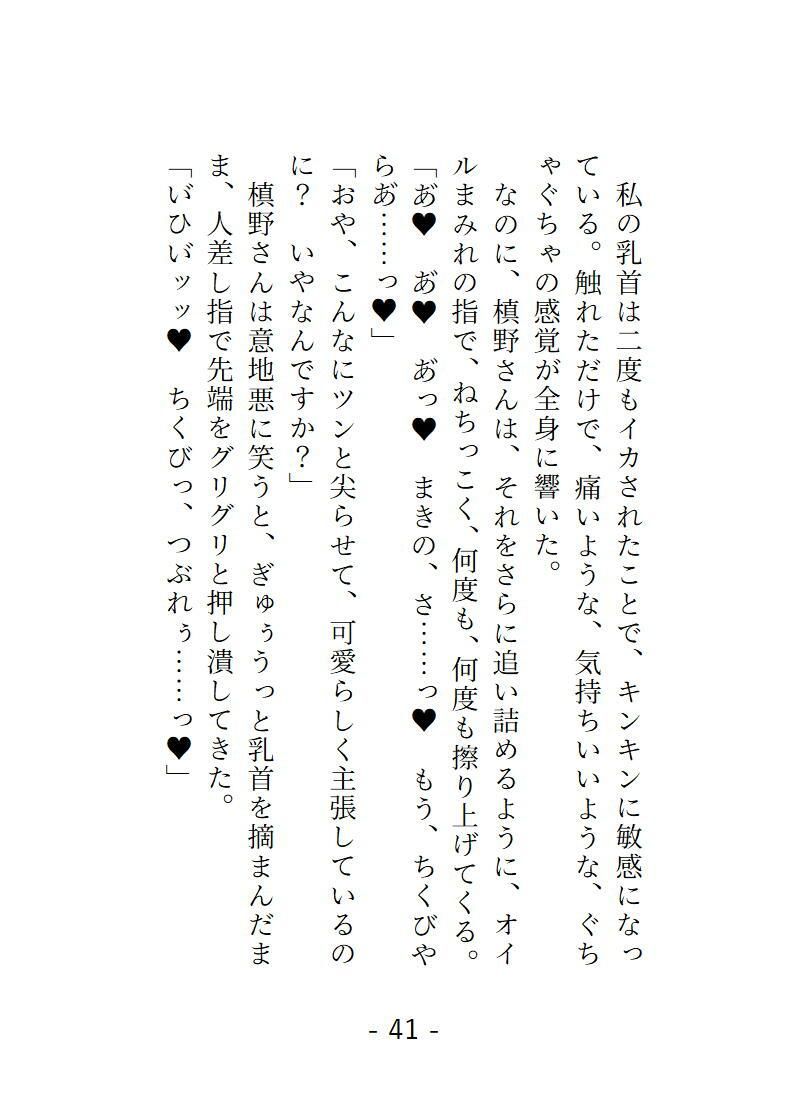 私の乳首は二度もイカされたことで、キンキンに敏感になっ
ている。触れただけで、痛いような、気持ちいいような、ぐち
ゃぐちゃの感覚が全身に響いた。
　なのに、槙野さんは、それをさらに追い詰めるように、オイ
ルまみれの指で、ねちっこく、何度も、何度も擦り上げてくる。
「あ゙♥　あ゙♥　あ゙っ♥　まきの、さ……っ♥　もう、ちくびや
らあ゙……っ♥」
「おや、こんなにツンと尖らせて、可愛らしく主張しているの
に？　いやなんですか？」
　槙野さんは意地悪に笑うと、ぎゅぅうっと乳首を摘まんだま
ま、人差し指で先端をグリグリと押し潰してきた。
「い゙ひい゙ッッ♥　ちくびっ、つぶれぅ……っ♥」
- 41 -